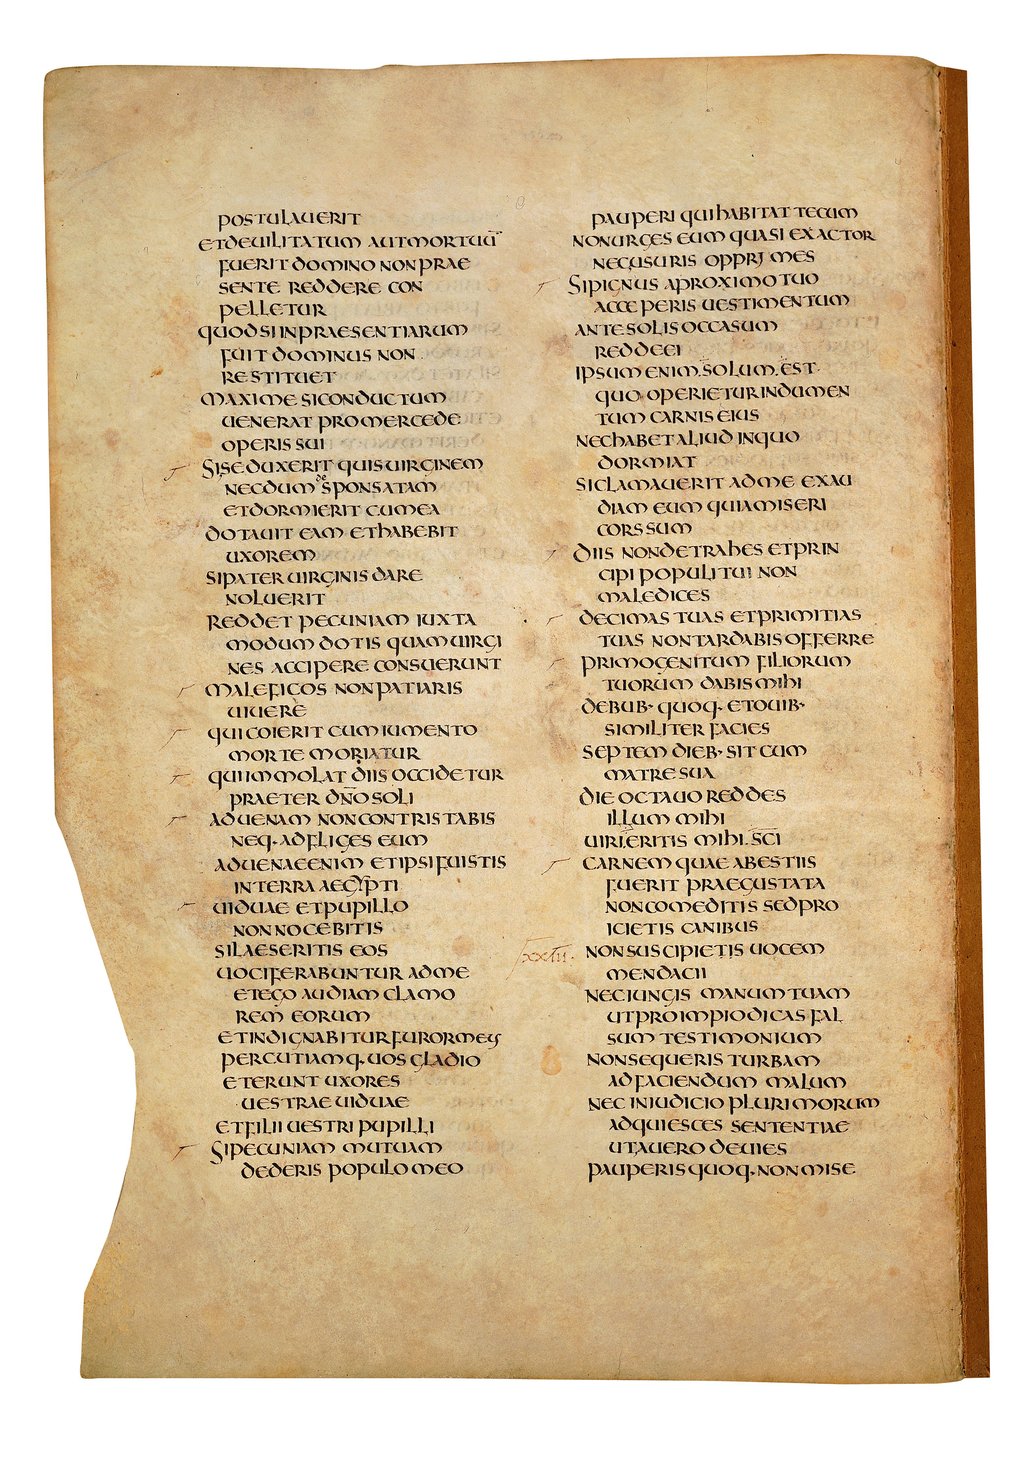 POSTULAUERIT
ETDEUILITATUM AUTMORTUŪ
FUERIT DOMINO NON PRAE
SENTE REDDERE CON
PELLETUR
QUODSI IN PRAESENTIARUM
FUIT DOMINUS NON
RESTITUET
MAXIME SI CONDUCTUM
UENERAT PRO MERCEDE
OPERIS SUI
SI SEDUXERIT QUIS UIRGINEM
NECDUM DESPONSATAM
ET DORMIERIT CUM EA
DOTAUIT EAM ET HABEBIT
UXOREM
SI PATER UIRGINIS DARE
NOLUERIT
REDDET PECUNIAM IUXTA
MODUM DOTIS QUAM UIRGI
NES ACCIPERE CONSUERUNT
MALEFICOS NON PATIARIS
UIUERE
QUI COIERIT CUM IUMENTO
MORTE MORIATUR
QUI IMMOLAT DIIS OCCIDETUR
PRAETER DN̄O SOLI
ADUENAM NON CONTRISTABIS
NEQ· ADFLIGES EUM
ADUENAE ENIM ET IPSI FUISTIS
IN TERRA AEGYPTI
UIDUAE ET PUPILLO
NON NOCEBITIS
SI LAESERITIS EOS
UOCIFERABUNTUR AD ME
ET EGO AUDIAM CLAMO
REM EORUM
ET INDIGNABITUR FUROR MEUS
PERCUTIAMQ· UOS GLADIO
ET ERUNT UXORES
UESTRAE UIDUAE
ET FILII UESTRI PUPILLI
SI PECUNIAM MUTUAM
DEDERIS POPULO MEO
PAUPERI QUI HABITAT TECUM
NON URGES EUM QUASI EXACTOR
NEC USURIS OPPRIMES
SI PIGNUS A PROXIMO TUO
ACCEPERIS UESTIMENTUM
ANTE SOLIS OCCASUM
REDDE EI
IPSUM ENIM SOLUM EST
QUO OPERIETUR INDUMEN
TUM CARNIS EIUS
NEC HABET ALIUD IN QUO
DORMIAT
SI CLAMAUERIT AD ME EXAU
DIAM EUM QUIA MISERI
CORS SUM
DIIS NON DETRAHES ET PRIN
CIPI POPULI TUI NON
MALEDICES
DECIMAS TUAS ET PRIMITIAS
TUAS NON TARDABIS OFFERRE
PRIMOGENITUM FILIORUM
TUORUM DABIS MIHI
DE BUB· QUOQ· ET OUIB·
SIMILITER FACIES
SEPTEM DIEB· SIT CUM
MATRE SUA
DIE OCTAUO REDDES
ILLUM MIHI
UIRI ERITIS MIHI SC̄I
CARNEM QUAE A BESTIIS
FUERIT PRAEGUSTATA
NON COMEDITIS SED PRO
ICIETIS CANIBUS
XXIII· NON SUSCIPIETIS UOCEM
MENDACII
NEC IUNGIS MANUM TUAM
UT PRO IMPIO DICAS FAL
SUM TESTIMONIUM
NON SEQUERIS TURBAM
AD FACIENDUM MALUM
NEC IN IUDICIO PLURIMORUM
ADQUIESCES SENTENTIAE
UT A UERO DEUIES
PAUPERIS QUOQ· NON MISE